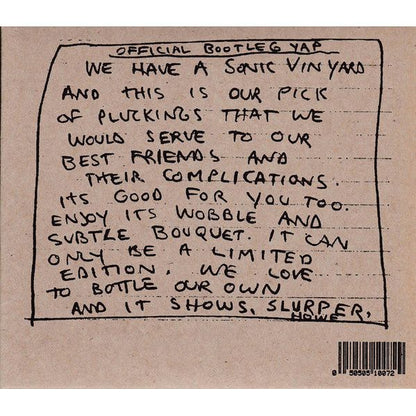 OFFICIAL BOOTLEG YAP
WE HAVE A SONIC VINYARD
AND THIS IS OUR PICK
OF PLUCKINGS THAT WE
WOULD SERVE TO OUR
BEST FRIENDS AND
THEIR COMPLICATIONS.
ITS GOOD FOR YOU TOO.
ENJOY ITS WOBBLE AND
SUBTLE BOUQUET. IT CAN
ONLY BE A LIMITED
EDITION. WE LOVE
TO BOTTLE OUR OWN
AND IT SHOWS. SLURPER.
HOWE
0 50505 10072